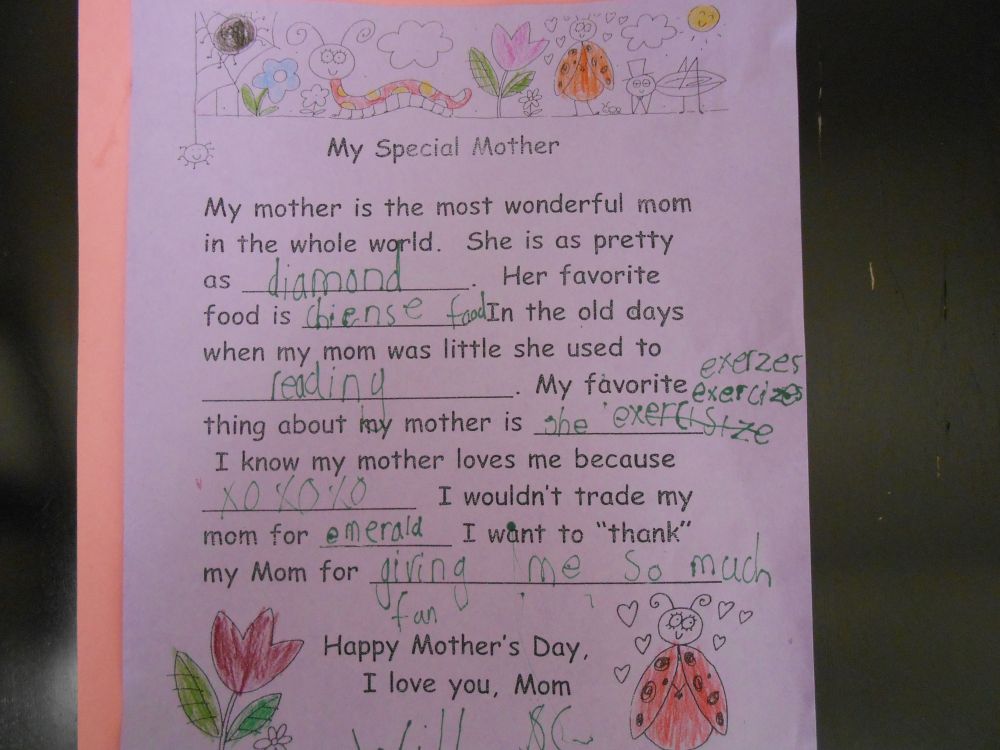 My Special Mother
My mother is the most wonderful mom
in the whole world. She is as pretty
as diamond. Her favorite
food is chiense food In the old days
when my mom was little she used to
exerzes
reading. My favorite exercizes
thing about my mother is she exercisize
I know my mother loves me because
XOXOXO I wouldn't trade my
mom for emerald I want to "thank"
my Mom for giving me so much
fun
Happy Mother's Day,
I love you, Mom
Will